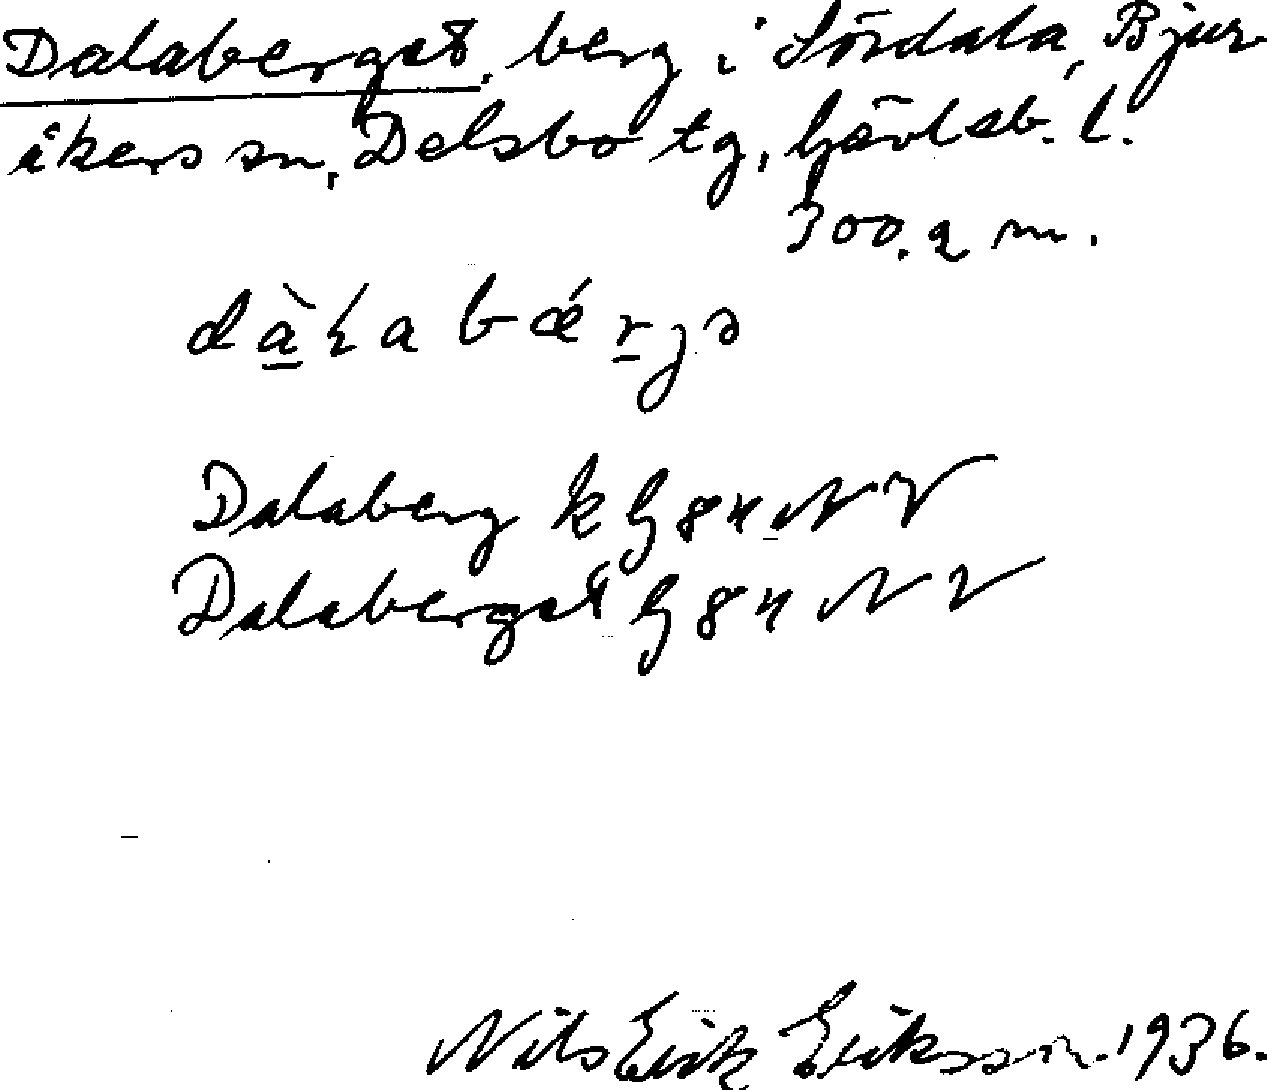 Dalaberget, berg i Sördala, Bjur-
åkers sn, Delsbo tg, Gävleb. l.
300.2 m.
dàɽabǽrjə
Dalaberg k G 84 NV
Dalaberget G 84 NV
Nils Erik Eriksson. 1936.